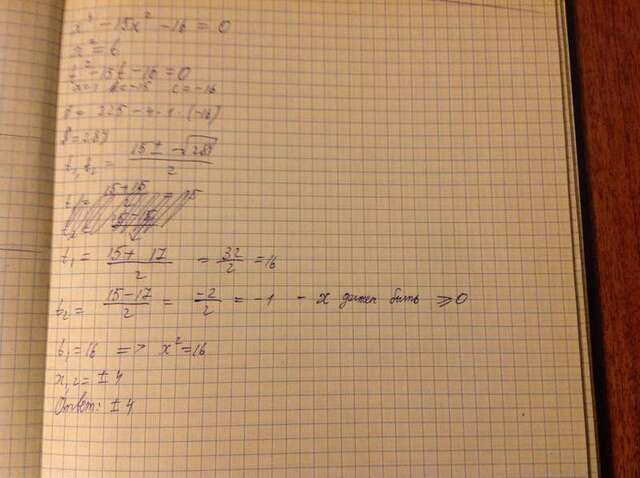 x⁴ - 15x² - 16 = 0
x² = t
t² - 15t - 16 = 0
b = -15 c = -16
D = 225 - 4·1·(-16)
D = 289
t₁,t₂ = (15 ± √289)/2
t₁ = (15 + 17)/2 = 32/2 = 16
t₂ = (15 - 17)/2 = -2/2 = -1 - x должен быть ⩾ 0
t₁ = 16 => x² = 16
x₁,₂ = ± 4
Ответ: ± 4